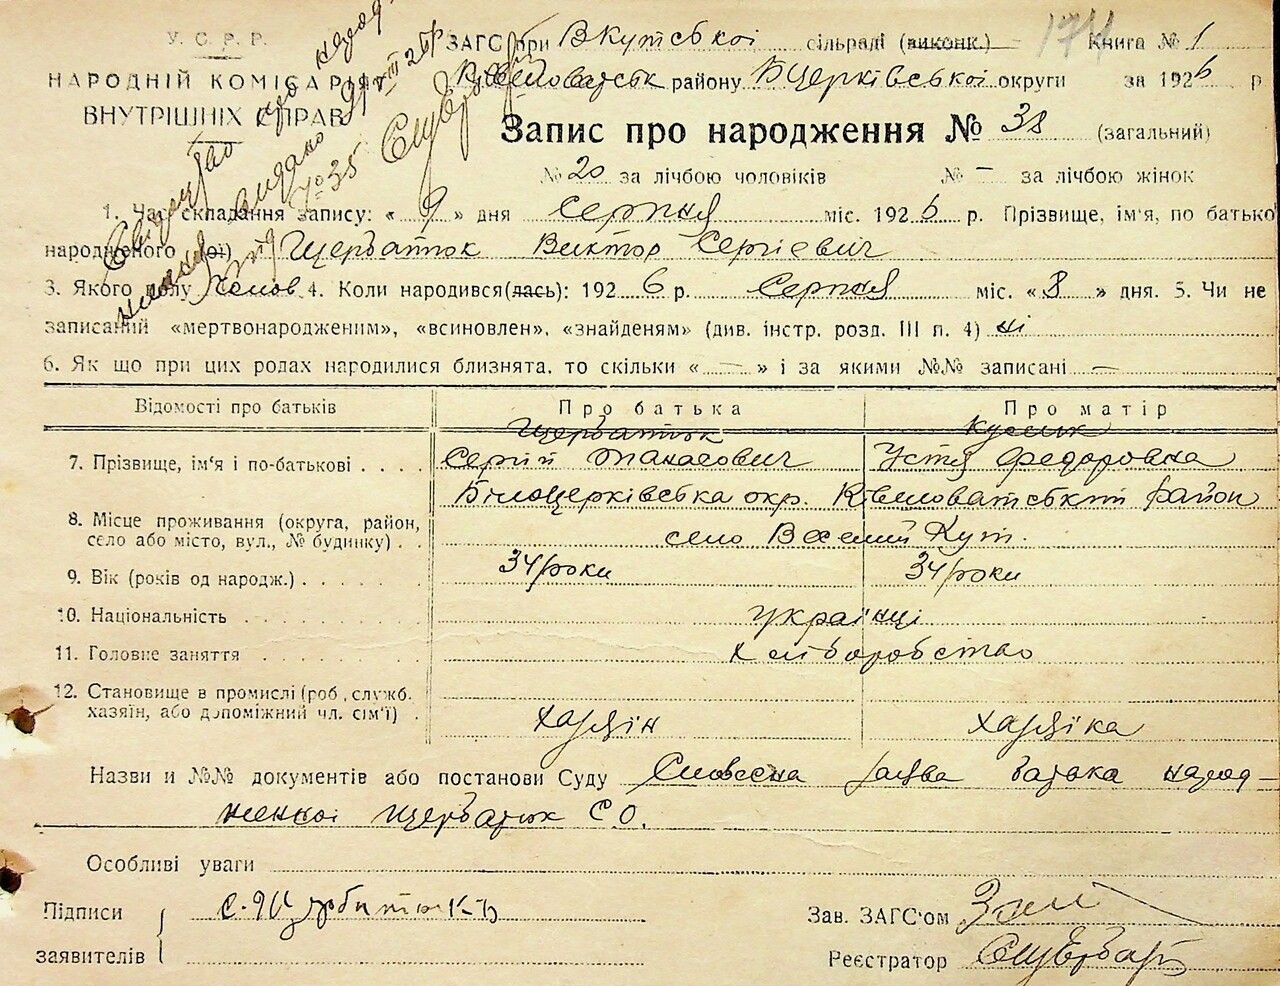 У. С. Р. Р.
НАРОДНІЙ КОМІСАРІЯТ
ВНУТРІШНІХ СПРАВ
ЗАГС при ВКутської сільраді (виконк.) Книга № 1
174
району БЦерківської округи за 1926 р
Запис про народження № 38 (загальний)
№ 20 за лічбою чоловіків № — за лічбою жінок
видано
№ 35
1. Час складання запису: « 9 » дня серпня міс. 1926 р. Прізвище, ім'я, по батько
народженого (ої) Щербатюк Виктор Сергіевич
3. Якого полу 4. Коли народився(лась): 1926 р. Серпня міс. «8» дня. 5. Чи не
записаний «мертвонародженим», «всиновлен», «знайденям» (див. інстр. розд. III п. 4) ні
6. Як що при цих родах народилися близнята, то скільки « — » і за якими №№ записані —
Відомості про батьків Про батька Про матір
Щербатюк
7. Прізвище, ім'я і по-батькові . . . . Сергій Танасович Устя Федоровна
Білоцерківська окр. район
8. Місце проживання (округа, район,
село або місто, вул., № будинку) . . село Веселий Кут.
9. Вік (років од народж.) . . . . . . 34 роки 34 роки
10. Національність . . . . . . . . українці
11. Головне заняття . . . . . . . . хліборобство
12. Становище в промислі (роб., служб.
хазяїн, або допоміжний чл. сім'ї) . хазяін хазяіка
Назви и №№ документів або постанови Суду Словесна заява батька народ-
Щербатюк С.О.
Особливі уваги
Підписи
заявителів
Зав. ЗАГС'ом
Реєстратор